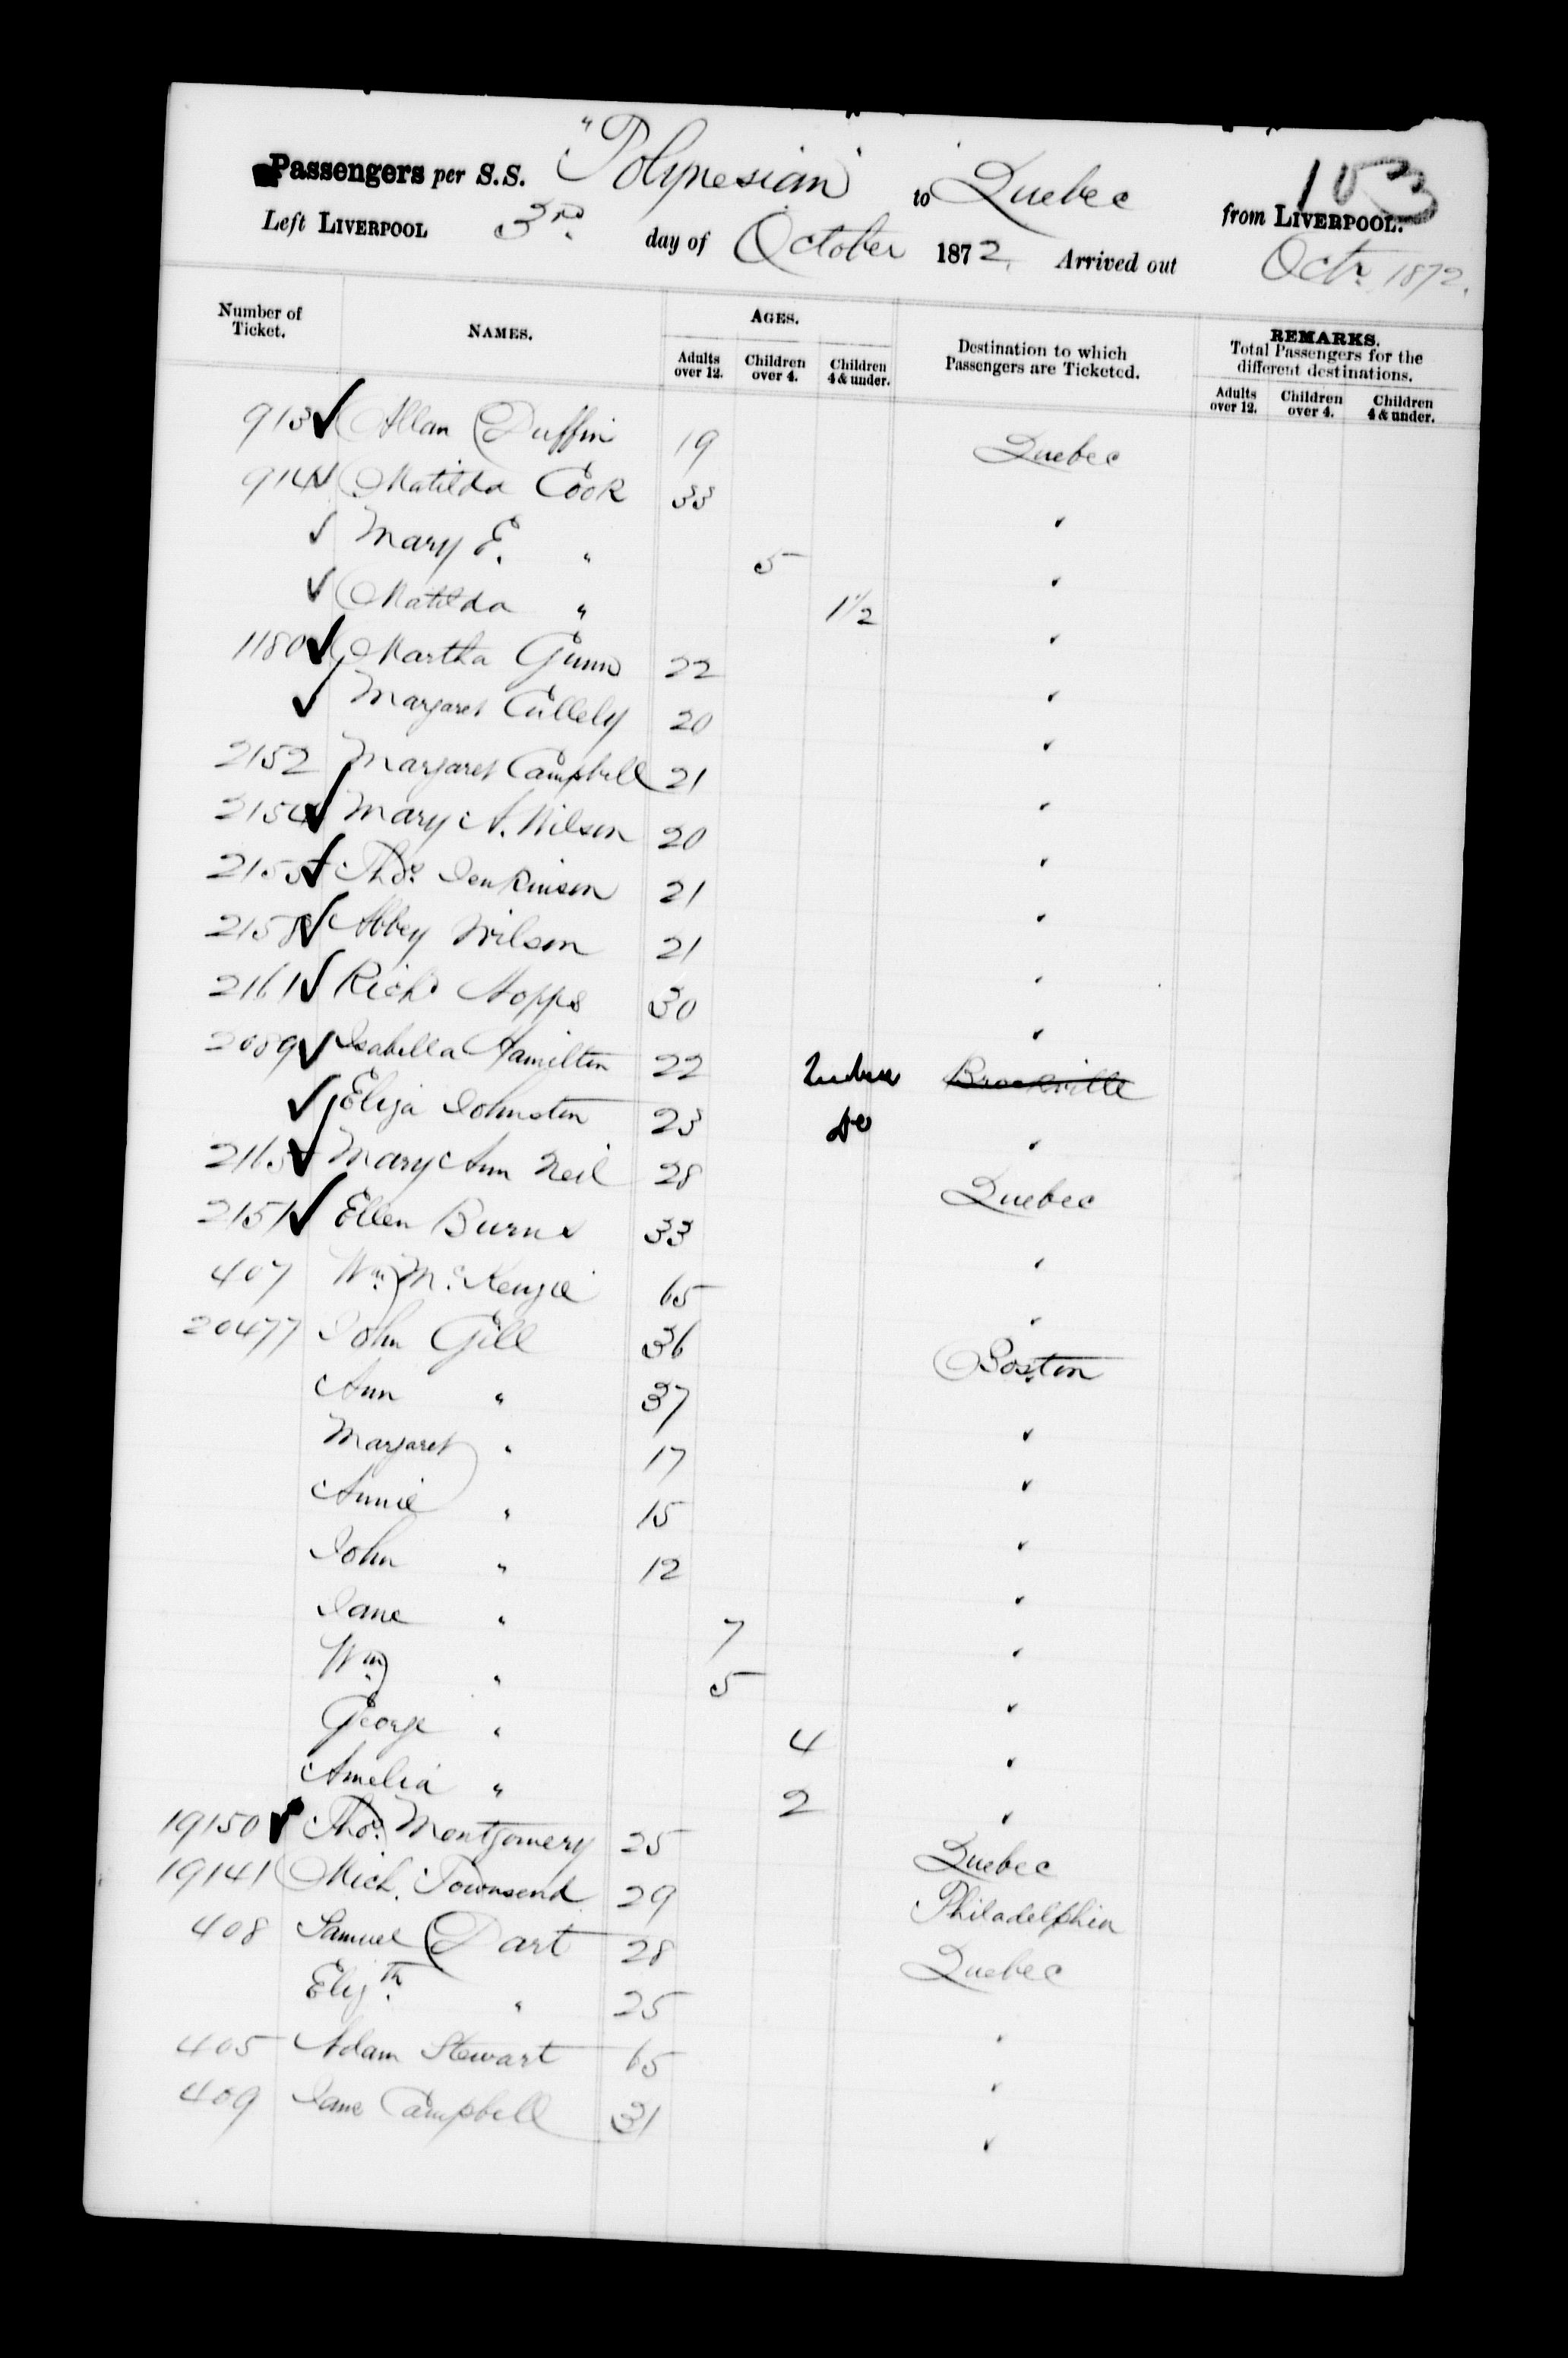 103
Passengers per S.S. "Polynesian" to Quebec from LIVERPOOL.
Left LIVERPOOL 3rd day of October 1872. Arrived out Octr. 1872.
Number of Ticket. NAMES. AGES. Destination to which Passengers are Ticketed. REMARKS. Total Passengers for the different destinations.
Adults over 12. Children over 4. Children 4 & under. Adults over 12. Children over 4. Children 4 & under.
913 ✓ Allan Duffin 19 Quebec
914 ✓ Matilda Cook 33 "
✓ Mary E. " 5 "
✓ Matilda " 1 1/2 "
1180 ✓ Martha Gunn 22 "
✓ Margaret Cullely 20 "
2152 Margaret Campbell 21 "
2154 ✓ Mary A. Wilson 20 "
2155 ✓ Thos. Jenkinson 21 "
2158 ✓ Abbey Wilson 21 "
2161 ✓ Richd Hopps 30 "
2089 ✓ Isabella Hamilton 22 Quebec Brockville
✓ Eliza Johnston 23 do "
2165 ✓ Mary Ann Neil 28 Quebec
2151 ✓ Ellen Burns 33 "
407 Wm. McKenzie 65 "
20477 John Gill 36 Boston
Ann " 37 "
Margaret " 17 "
Annie " 15 "
John " 12 "
Jane " 7 "
Wm. " 5 "
George " 4 "
Amelia " 2 "
19150 ✓ Thos. Montgomery 25 Quebec
19141 Mich. Townsend 29 Philadelphia
408 Samuel Dart 28 Quebec
Elizth. " 25 "
405 Adam Stewart 65 "
409 Jane Campbell 31 "